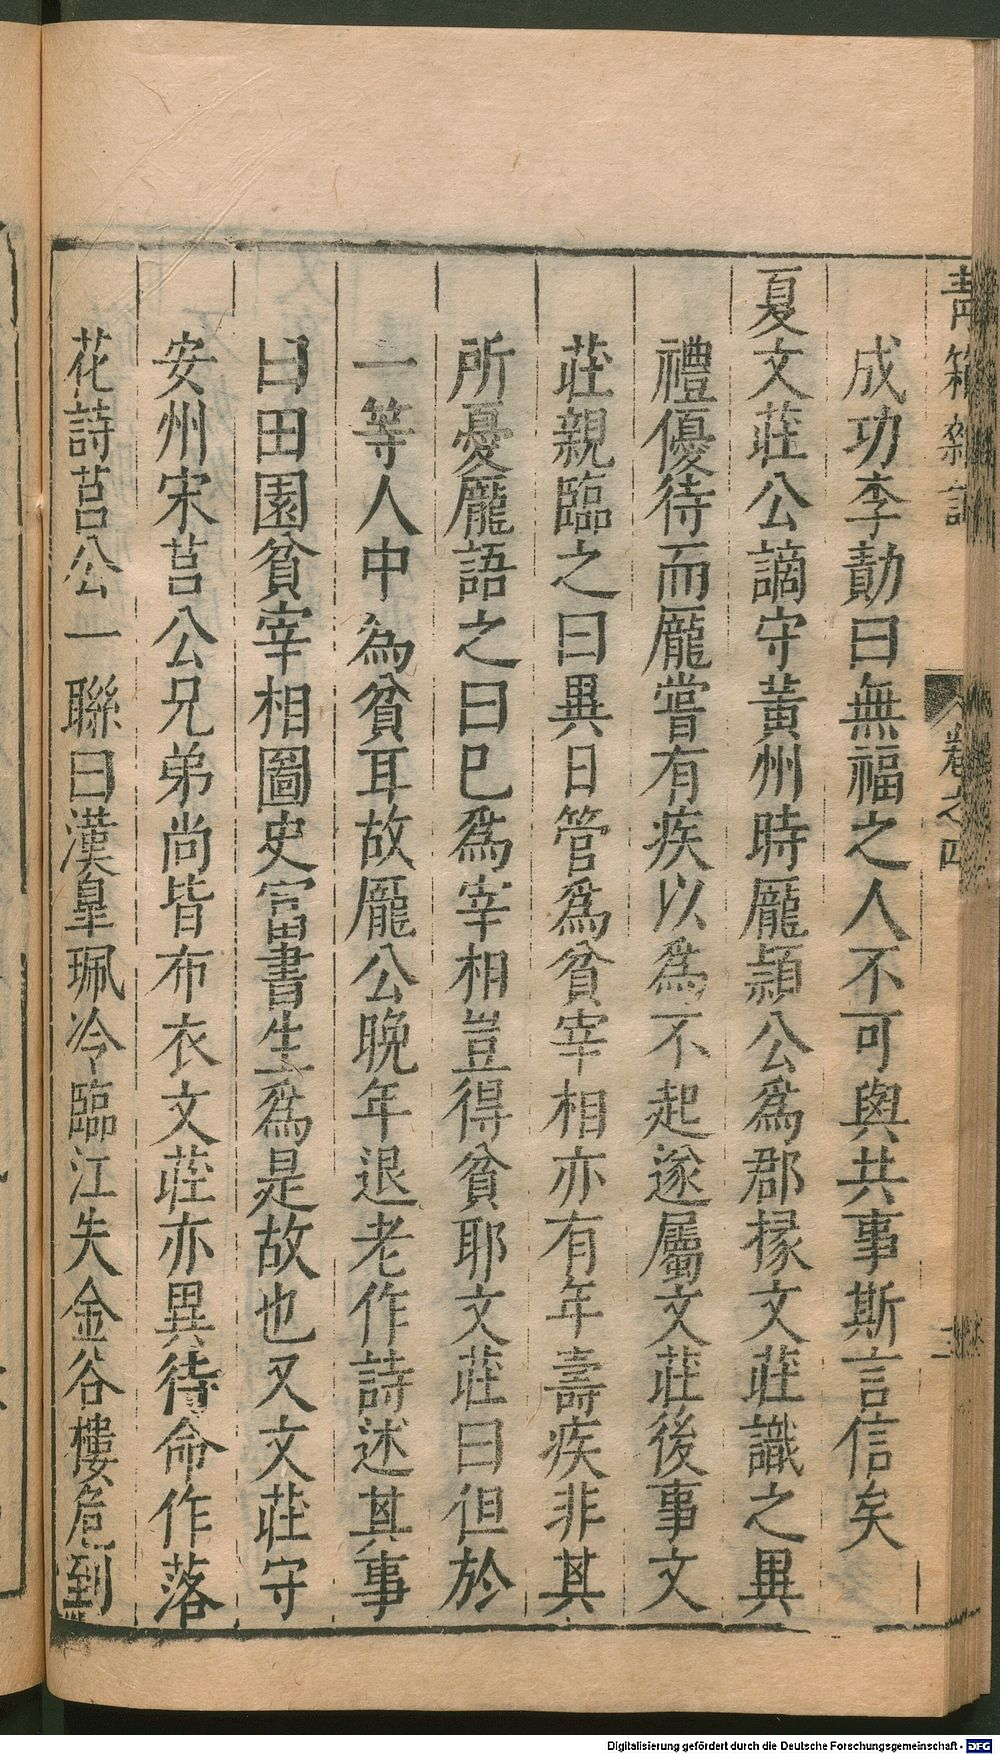 青箱雜記
卷之四
成功李勣曰無福之人不可與共事斯言信矣
夏文莊公謫守黃州時龐頴公爲郡掾文莊識之異
禮優待而龐嘗有疾以爲不起遂屬文莊後事文
莊親臨之曰異日管爲貧宰相亦有年壽疾非其
所憂龐語之曰巳爲宰相豈得貧耶文莊曰但於
一等人中爲貧耳故龐公晚年退老作詩述其事
曰田園貧宰相圖史富書生爲是故也又文莊守
安州宋莒公兄弟尚皆布衣文莊亦異待命作落
花詩莒公一聯曰漢皐珮冷臨江失金谷樓危到
Digitalisierung gefördert durch die Deutsche Forschungsgemeinschaft - DFG